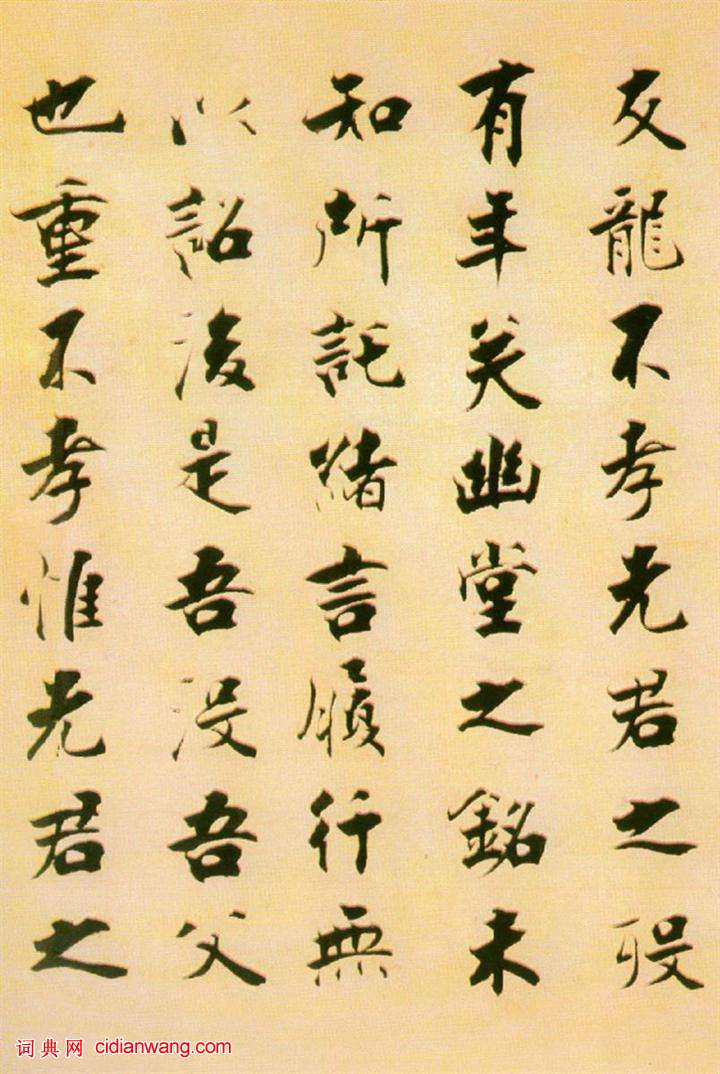 友龍不孝先君之歿
有年矣幽堂之銘未
知所託緒言履行無
以詔後是吾没吾父
也重不孝惟先君之
词典网 cidianwang.com